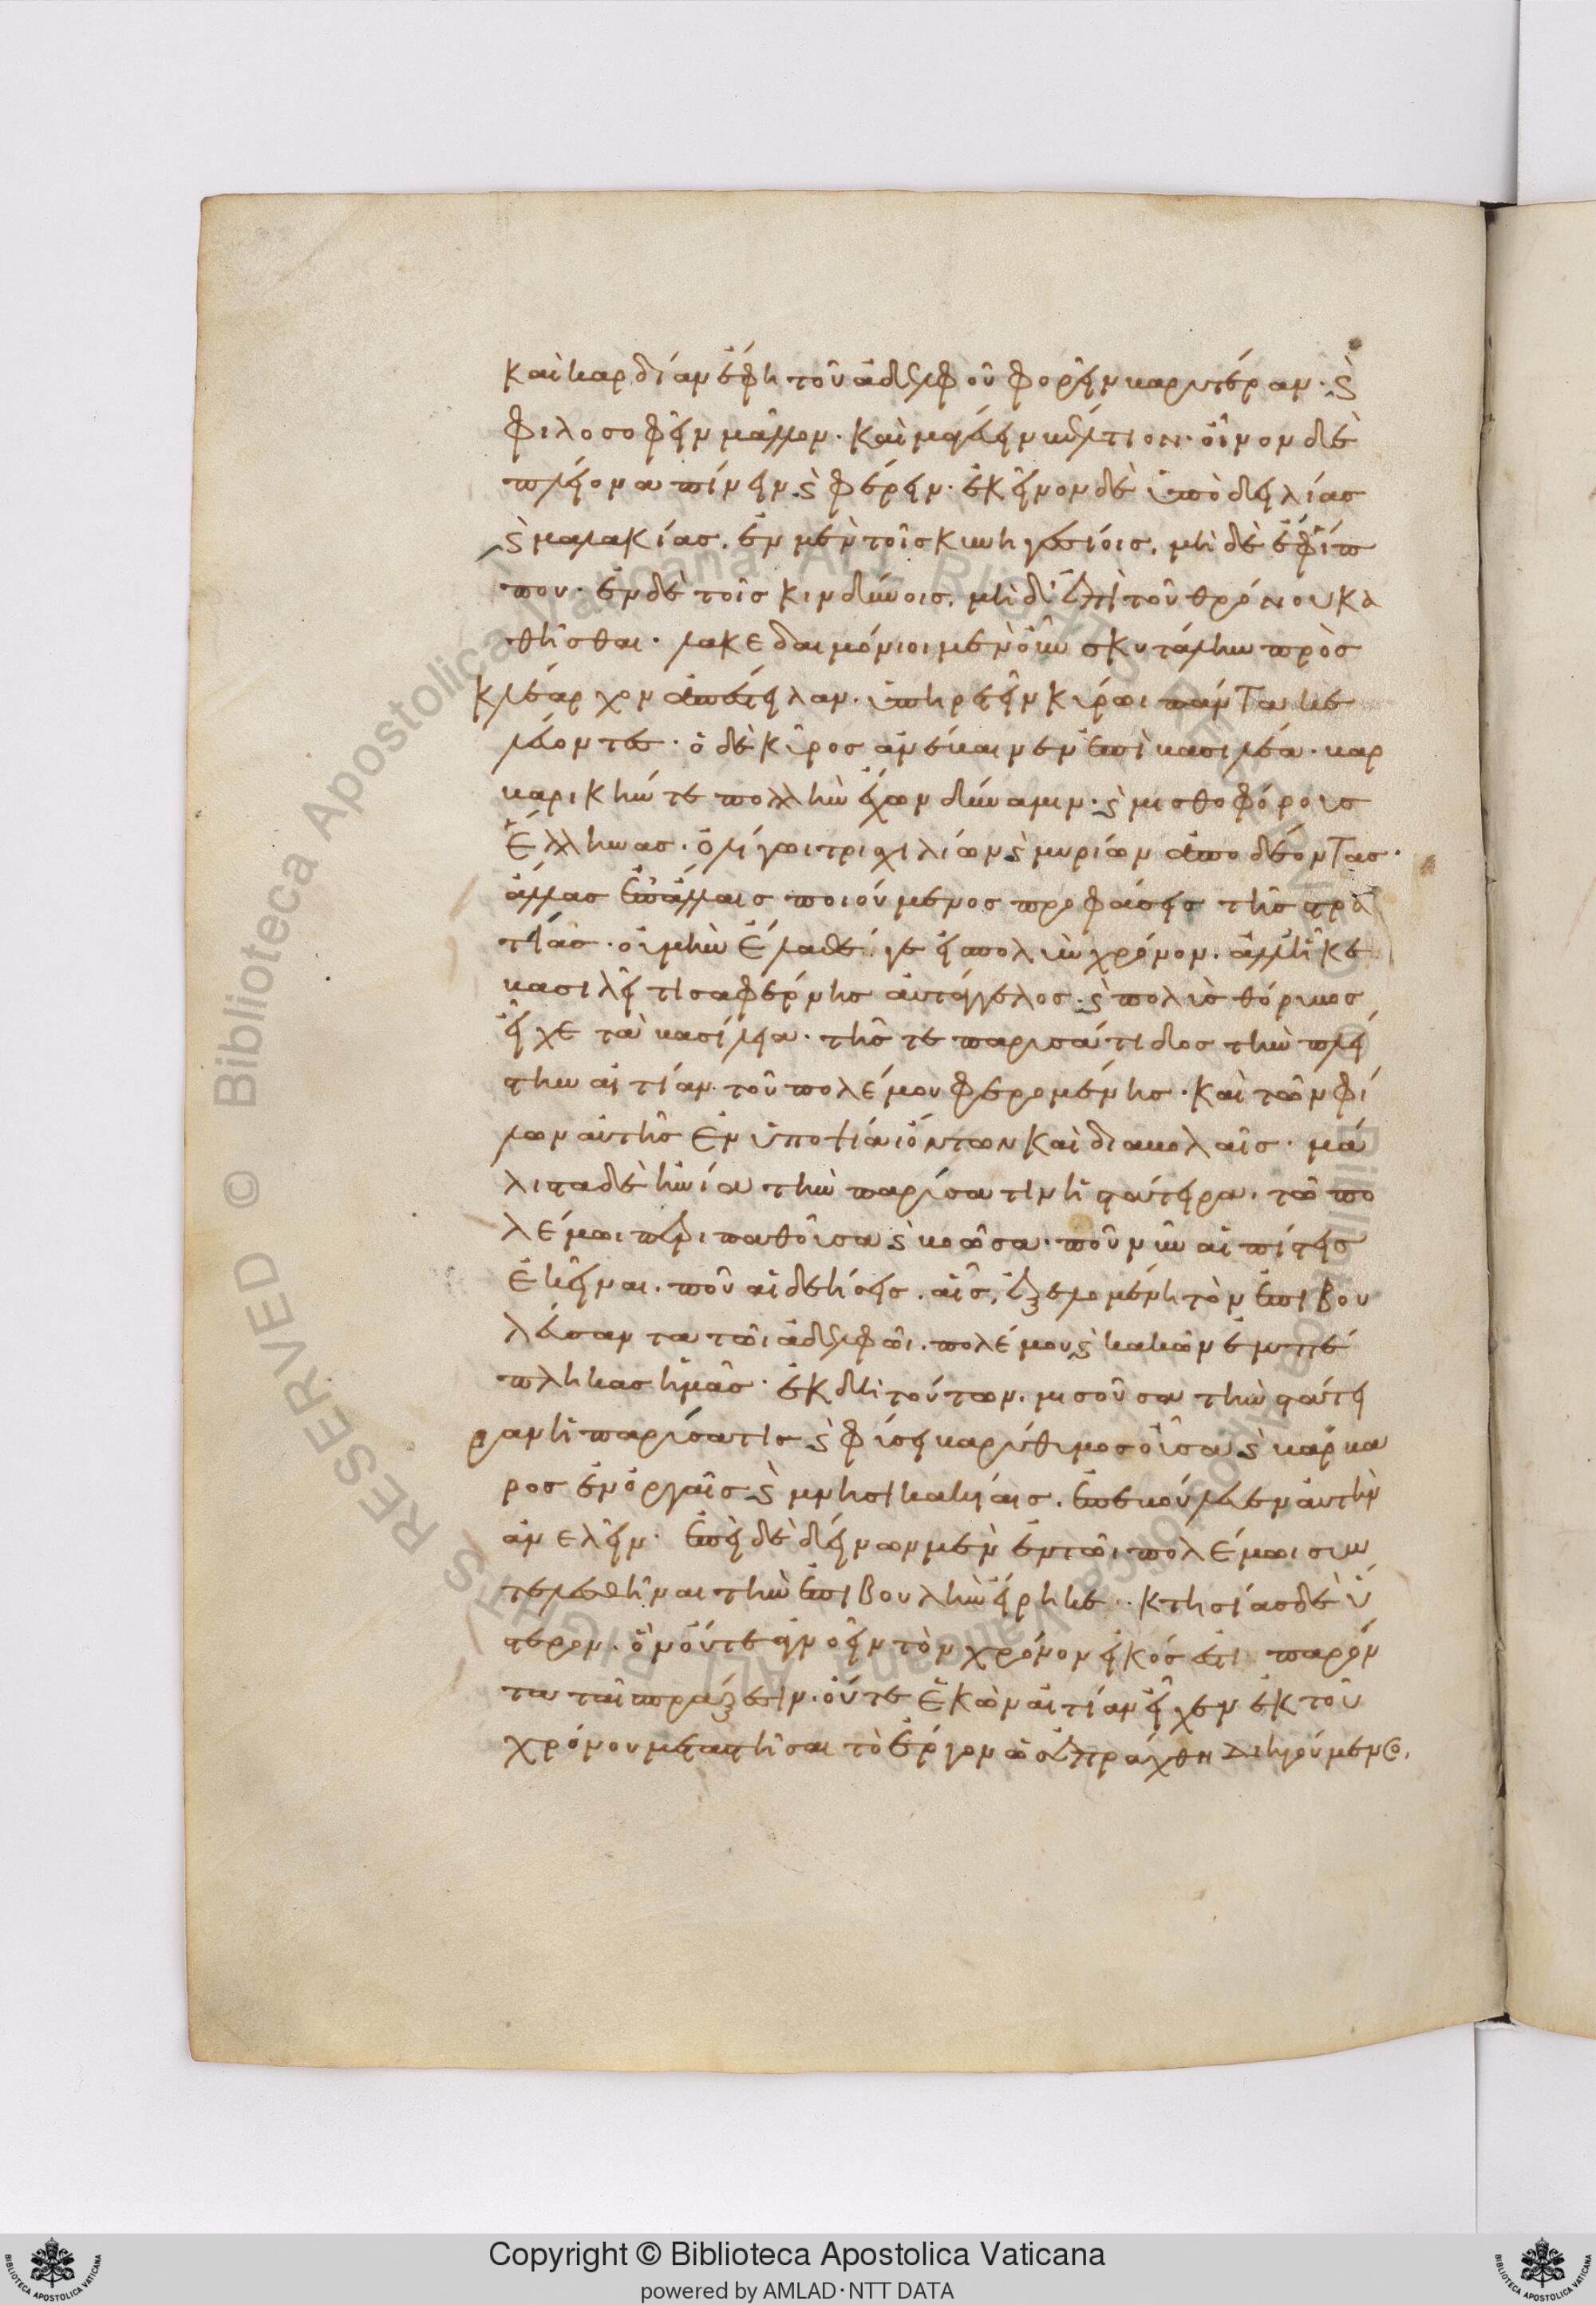 καὶ καρδίαν ἔφη τοῦ ἀδελφοῦ φορεῖν βαρυτέραν· καὶ
φιλοσοφεῖν μᾶλλον· καὶ μαγεύειν βέλτιον· οἶνον δὲ
πλείονα πίνειν καὶ φέρειν· ἐκεῖνον δὲ ὑπὸ δειλίας
καὶ μαλακίας, ἐν μὲν τοῖς κυνηγεσίοις, μὴ δὲ ἐφ' ἵπ
που· ἐν δὲ τοῖς κινδύνοις, μὴ δ' ἐπὶ τοῦ θρόνου κα
θῆσθαι· λακεδαιμόνιοι μὲν οὖν σκυτάλην πρὸς
κλέαρχον ἀπέστειλαν· ὑπηρετεῖν κύρωι πάντα κε
λεύοντες· ὁ δὲ κῦρος ἀνέβαινεν ἐπὶ βασιλέα· βαρ
βαρικήν τε πολλὴν ἔχων δύναμιν· καὶ μισθοφόρους
ἕλληνας· ὀλίγωι τρισχιλίων καὶ μυρίων ἀποδέοντας·
ἄλλας ἐπ' ἄλλαις ποιούμενος προφάσεις τῆς στρα
τείας· οὐ μὴν ἔλαθέ γε εἰς πολὺν χρόνον· ἀλλ' ἧκε
βασιλεῖ τισαφέρνης αὐτάγγελος· καὶ πολὺς θόρυβος
εἶχε τὰ βασίλεια· τῆς τε παρυσάτιδος τὴν πλεί
στην αἰτίαν τοῦ πολέμου φερομένης· καὶ τῶν φί
λων αὐτῆς ἐν ὑποψίαι ὄντων καὶ διαβολαῖς· μά
λιστα δὲ ἠνία τὴν παρύσατιν ἡ στάτειρα· τῶι πο
λέμωι περιπαθοῦσα καὶ βοῶσα· ποῦ νῦν αἱ πίστεις
ἐκεῖναι· ποῦ αἱ δεήσεις· αἷς, ἐξελομένη τὸν ἐπιβου
λεύσαντα τῶι ἀδελφῶι· πολέμου καὶ κακῶν ἐμπέ
πληκας ἡμᾶς· ἐκ δὴ τούτων· μισοῦσα τὴν στάτει
ραν ἡ παρύσατις καὶ φύσει βαρύθυμος οὖσα καὶ βάρβα
ρος ἐν ὀργαῖς καὶ μνησικακίαις· ἐπεβούλευεν αὐτὴν
ἀνελεῖν· ἐπεὶ δὲ δείνων μὲν ἐν τῶι πολέμωι συν
τελεσθῆναι τὴν ἐπιβουλὴν εἴρηκε· κτησίας δὲ ὕ
στερον· ὃν οὔτε ἀγνοεῖν τὸν χρόνον εἰκός ἐστι παρόν
τα ταῖς πράξεσιν· οὔτε ἑκὼν αἰτίαν εἶχεν ἐκ τοῦ
χρόνου μεταστῆσαι τὸ ἔργον ὡς ἐπράχθη διηγούμενος,
Copyright © Biblioteca Apostolica Vaticana
powered by AMLAD·NTT DATA